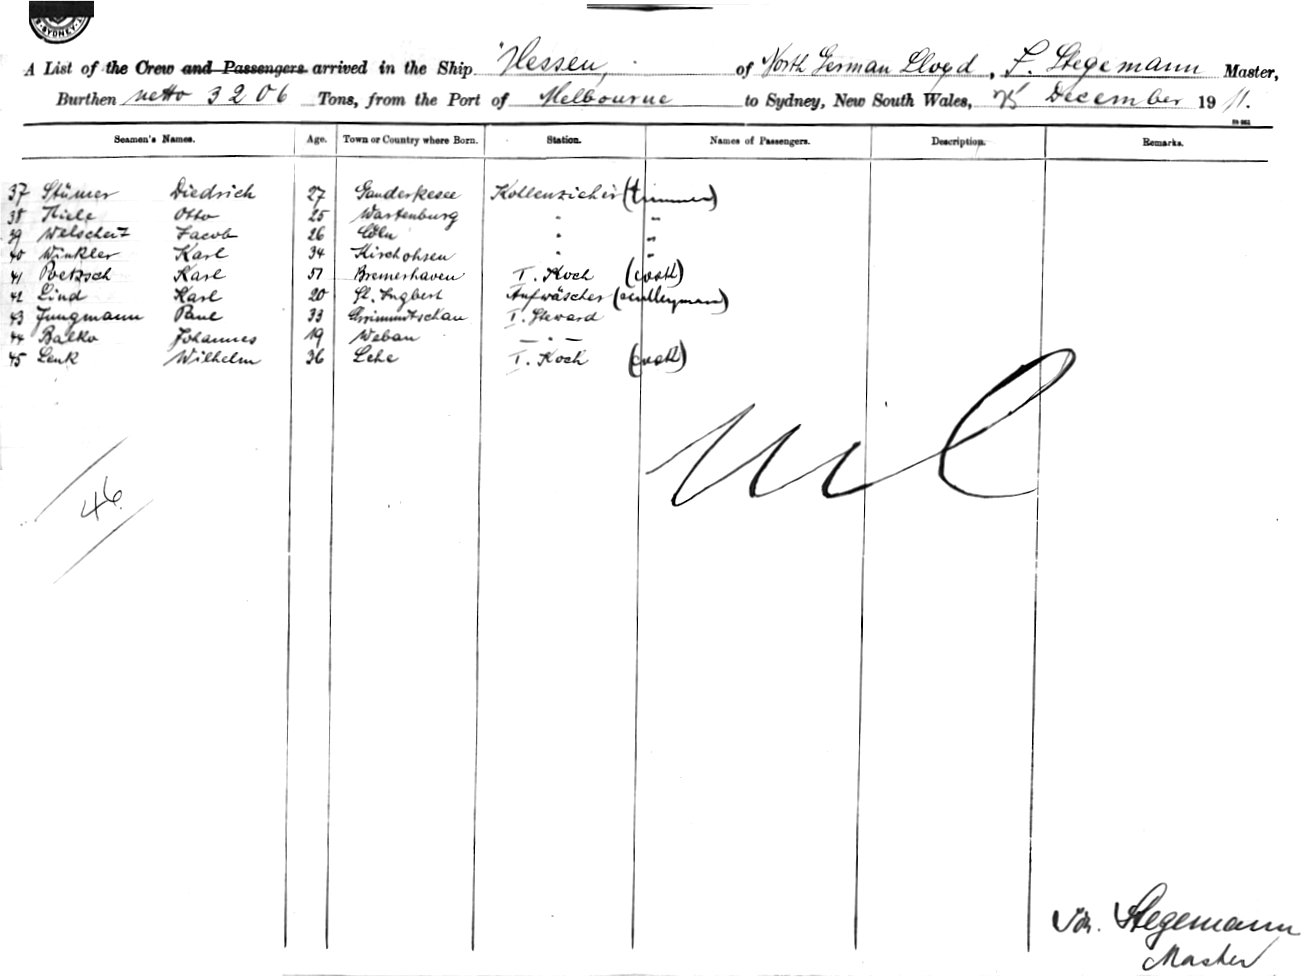 SYDNEY
A List of the Crew and Passengers arrived in the Ship "Hessen, of North German Lloyd, F. Stegemann Master,
Burthen netto 3206 Tons, from the Port of Melbourne to Sydney, New South Wales, December 1911.
Seamen's Names. Age. Town or Country where Born. Station. Names of Passengers. Description. Remarks.
37 Stümer Diedrich 27 Ganderkesee Kohlenzieher (trimmer)
38 Thiele Otto 25 Wartenburg " "
39 Welscherz Jacob 26 Cöln " "
40 Winkler Karl 34 Kirchohsen " "
41 Poetzsch Karl 51 Bremerhaven I. Koch (cook)
42 Lind Karl 20 St. Ingbert Aufwäscher (sculleryman)
43 Jungmann Paul 33 Crimmitschau I. Steward
44 Balko Johannes 19 Weban — " —
45 Lenk Wilhelm 36 Lehe I. Koch (cook)
Nil
46
Joh. Stegemann
Master